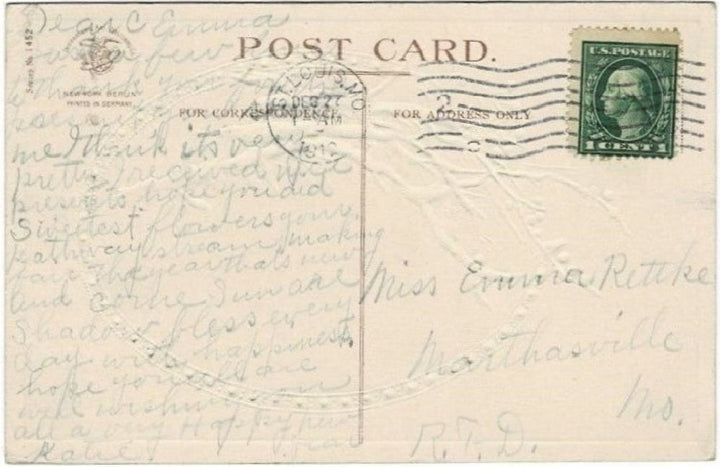 Dear Emma
Just a few
thank you for
present you
me I think its very
pretty received nice
presents hope you did
Sweetest flowers your
pathway stream, making
fair the year thats new
and come Sun and
Shadow bless every
day with happiness
hope you all are
well wishing you
all a very Happy New
Year
Katie
Series No. 1452
NEW YORK BERLIN
PRINTED IN GERMANY
POST CARD.
FOR CORRESPONDENCE
FOR ADDRESS ONLY
ST. LOUIS, MO
DEC 27
AM
U.S. POSTAGE
1 CENT 1
Miss Emma Rettke
Marthasville
Mo.
R.F.D.